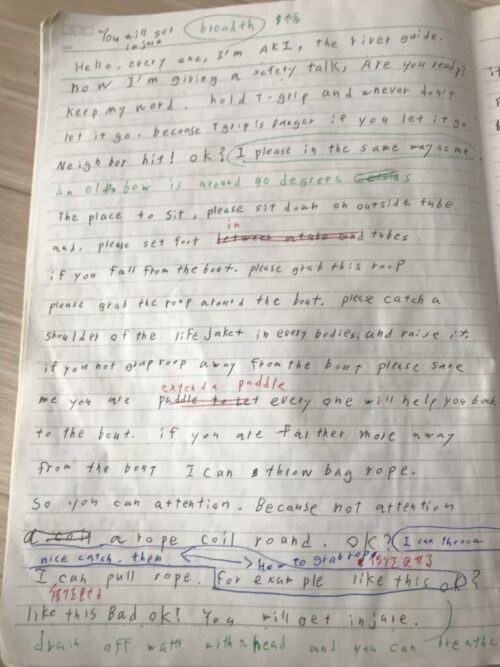 You will get breadth
injure
Hello, every one, I'm AKI, the river guide.
now I'm giving a safety talk, Are you ready?
keep my word. hold T-grip and whever don't
let it go. because T grip is danger if you let it go
Neighbor hit! ok? I please in the same way as me
An elbow is around 90 degrees
The place to sit, please sit down on outside tube
in
and, please set foot between and tubes
if you fall from the bout. please grab this roop
please grab the roop around the bout. please catch a
shoulder of the life jaket in every bodies, and raise it.
if you not grap roop away from the bout please save
extend a paddle
me you are paddle to let every one will help you back
to the bout. if you are farther more away
from the bout I can throw bag rope.
So you can attention. Because not attention
a coil a rope coil round. ok? I can throw
nice catch. then How to grab rope
I can pull rope. for example like this ok?
like this Bad ok? You will get injure.
drain off with a head and you can breathe